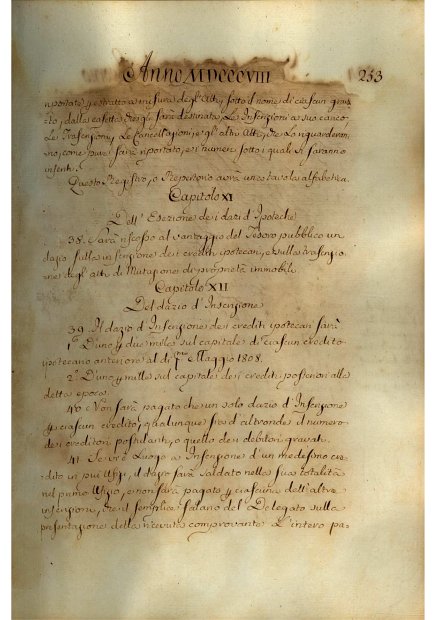 Anno MDCCCVIII 253
riportate, ed estratto a misura degl'Atti, sotto il nome di ciascun grava-
to, dalla casetta ad egli sarà destinata, Le Inscrizioni a suo carico,
Le Trascrizioni, Le Cancellazioni, e gl'altri Atti, che Lo riguarderan-
no, come pure sarà riportato, e i numeri sotto i quali si saranno
inseriti.
Questo Registro, o Repertorio avrà una tavola alfabetica.
Capitolo XI
Dell'Esezione dei dazi d'Ipoteche
38. Sarà riscosso al vantaggio del Tesoro pubblico un
dazio sulla inscrizione dei crediti ipotecari, e sulla trascrizio-
ne degl'atti di Mutazione di proprietà immobili.
Capitolo XII
Del dazio d'Inscrizione
39. Il dazio d'Inscrizione dei crediti ipotecari sarà
1.° D'uno p mille sul capitale di ciascun credito
ipotecario anteriore al dì p.mo Maggio 1808.
2.° D'uno p mille sul capitale dei crediti posteriori alla
detta epoca.
40. Non sarà pagato che un solo dazio d'Inscrizione
p ciascun credito, qualunque sia d'altronde il numero
dei creditori postulanti, e quello dei debitori gravati.
41. Se vi è Luogo a Inscrizione d'un medesimo cre-
dito in più Ufizj, il dazio sarà saldato nella sua totalità
nel primo Ufizio, e non sarà pagato p ciascuna dell'altre
inscrizioni, che il semplice salario del Delegato sulla
presentazione della ricevuta comprovante L'intero pa-